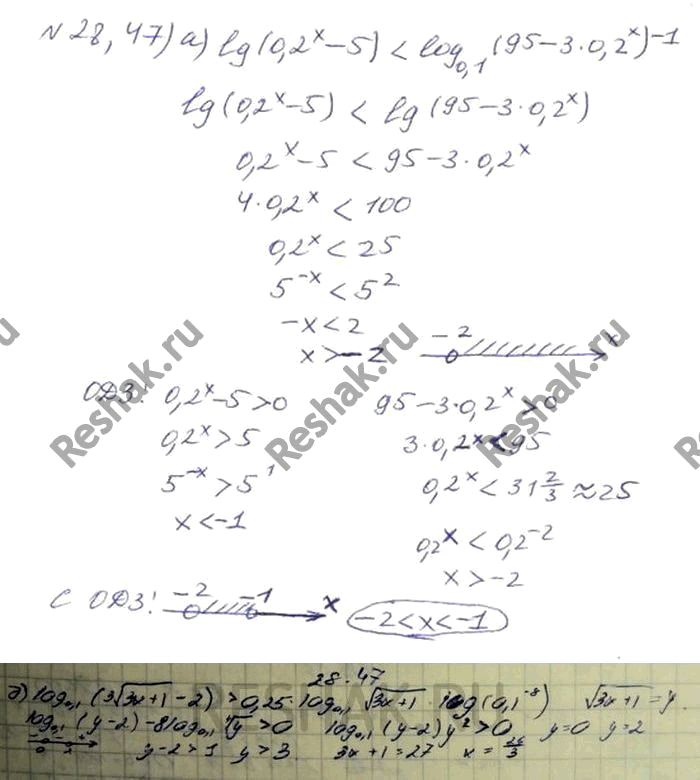 N 28, 47) а) lg(0,2^x−5) < log_{0,1}(95−3·0,2^x)^{−1}
lg(0,2^x−5) < lg(95−3·0,2^x)
0,2^x−5 < 95−3·0,2^x
4·0,2^x < 100
0,2^x < 25
5^{−x} < 5^2
−x < 2
x > −2
−2 x
ОДЗ: 0,2^x−5>0 95−3·0,2^x>0
0,2^x > 5 3·0,2^x < 95
5^{−x} > 5^1 0,2^x < 31 2/3 ≈ 25
x < −1 0,2^x < 0,2^{−2}
x > −2
с ОДЗ: −2 −1 x −2<x<−1
28.47
log_{0,1}(3√3x+1 −2) > 0,25·log_{0,1}√3x+1 · log(0,1^{−8}) √3x+1 = y
log_{0,1}(y−2)−8log_{0,1}∜y > 0 log_{0,1}(y−2)y^2 > 0 y=0 y=2
0 2 y−2>1 y>3 3x+1=27 x = 26/3
Reshak.ru
Reshak.ru
Reshak.ru
RESHAK.RU